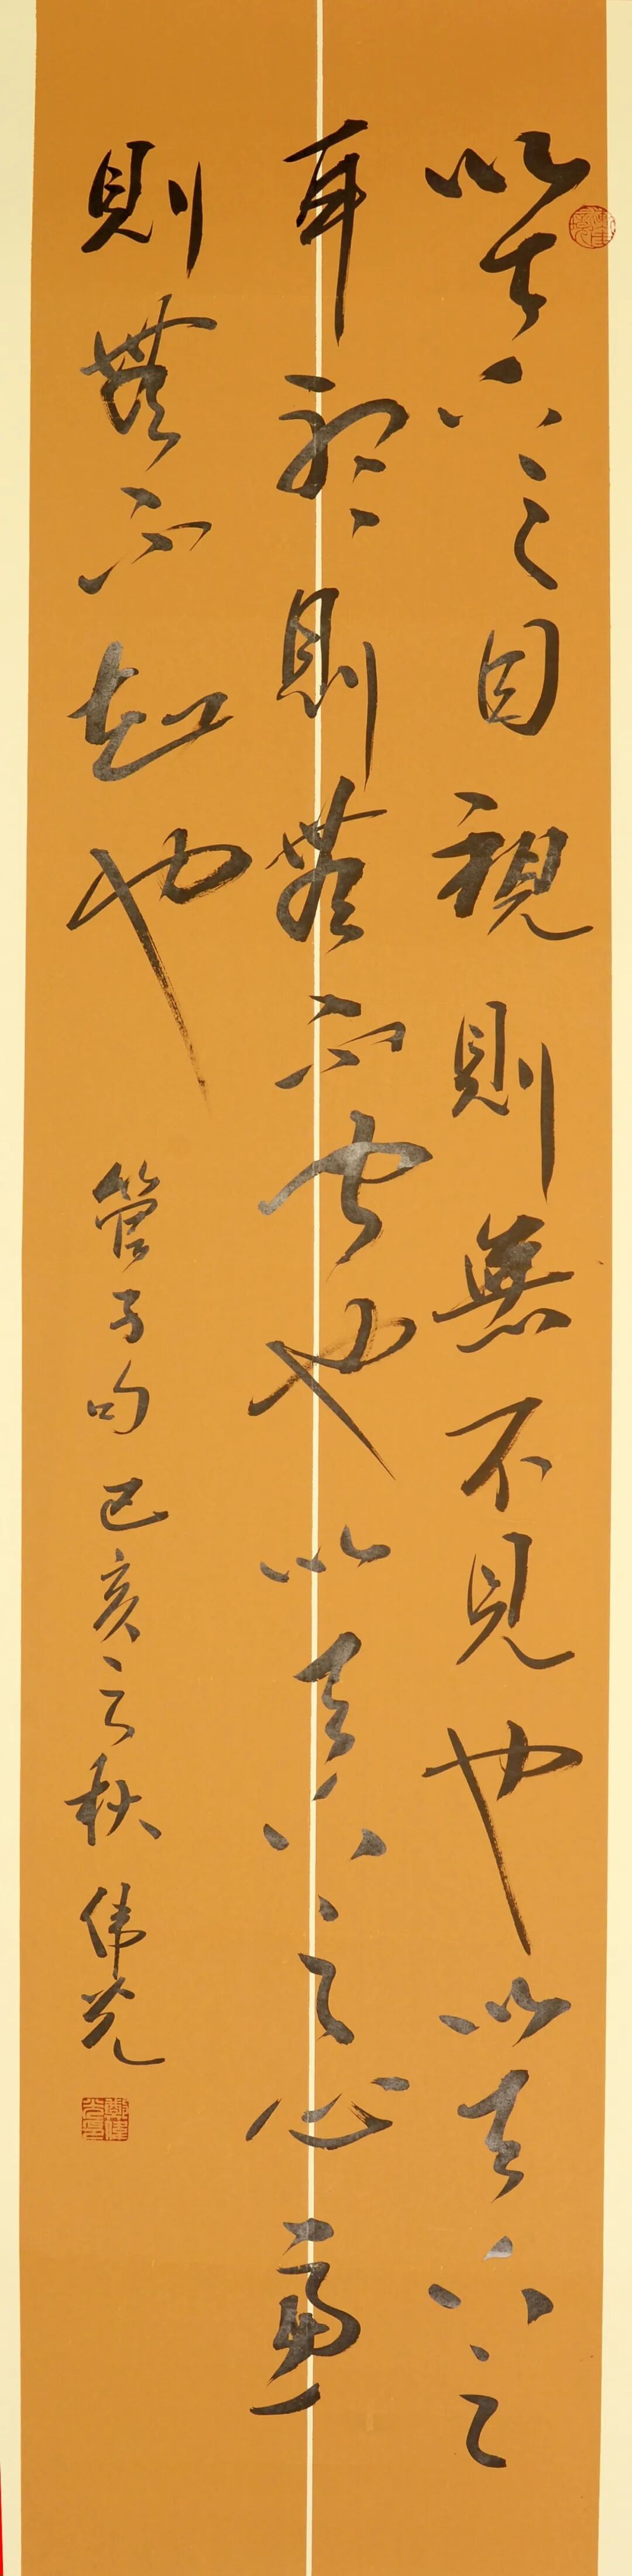 以天下之目視則無不見也以天下之
耳聽則無不聞也以天下之心慮
則無不知也
管子句己亥之秋偉光